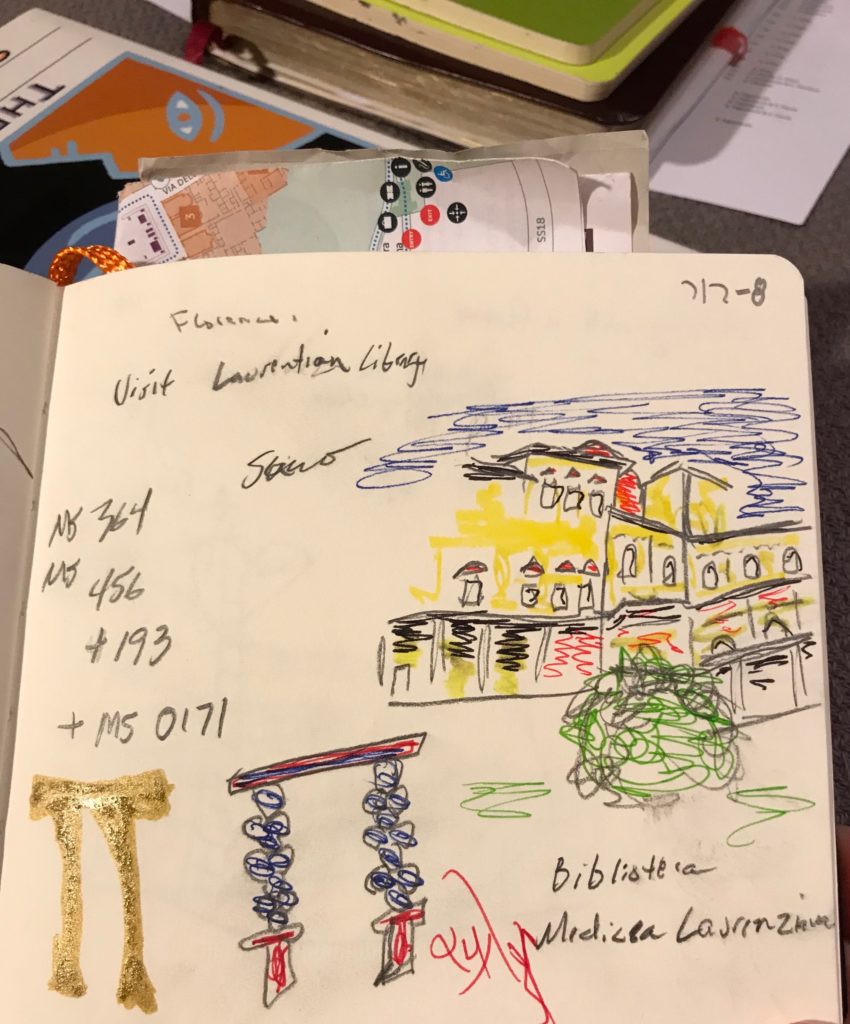 TH
VIA DEL
3
i
EXIT
SS18
Florence.
Visit Laurentian Library
MS 364
MS 456
+ 193
+ MS 0171
Π
Biblioteca
Medicea Laurenziana